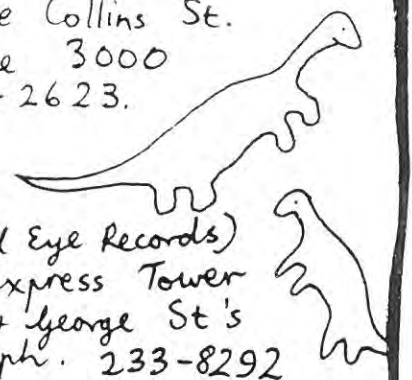 e Collins St.
e 3000
- 2623.
l Eye Records)
xpress Tower
+ George St's
ph. 233-8292